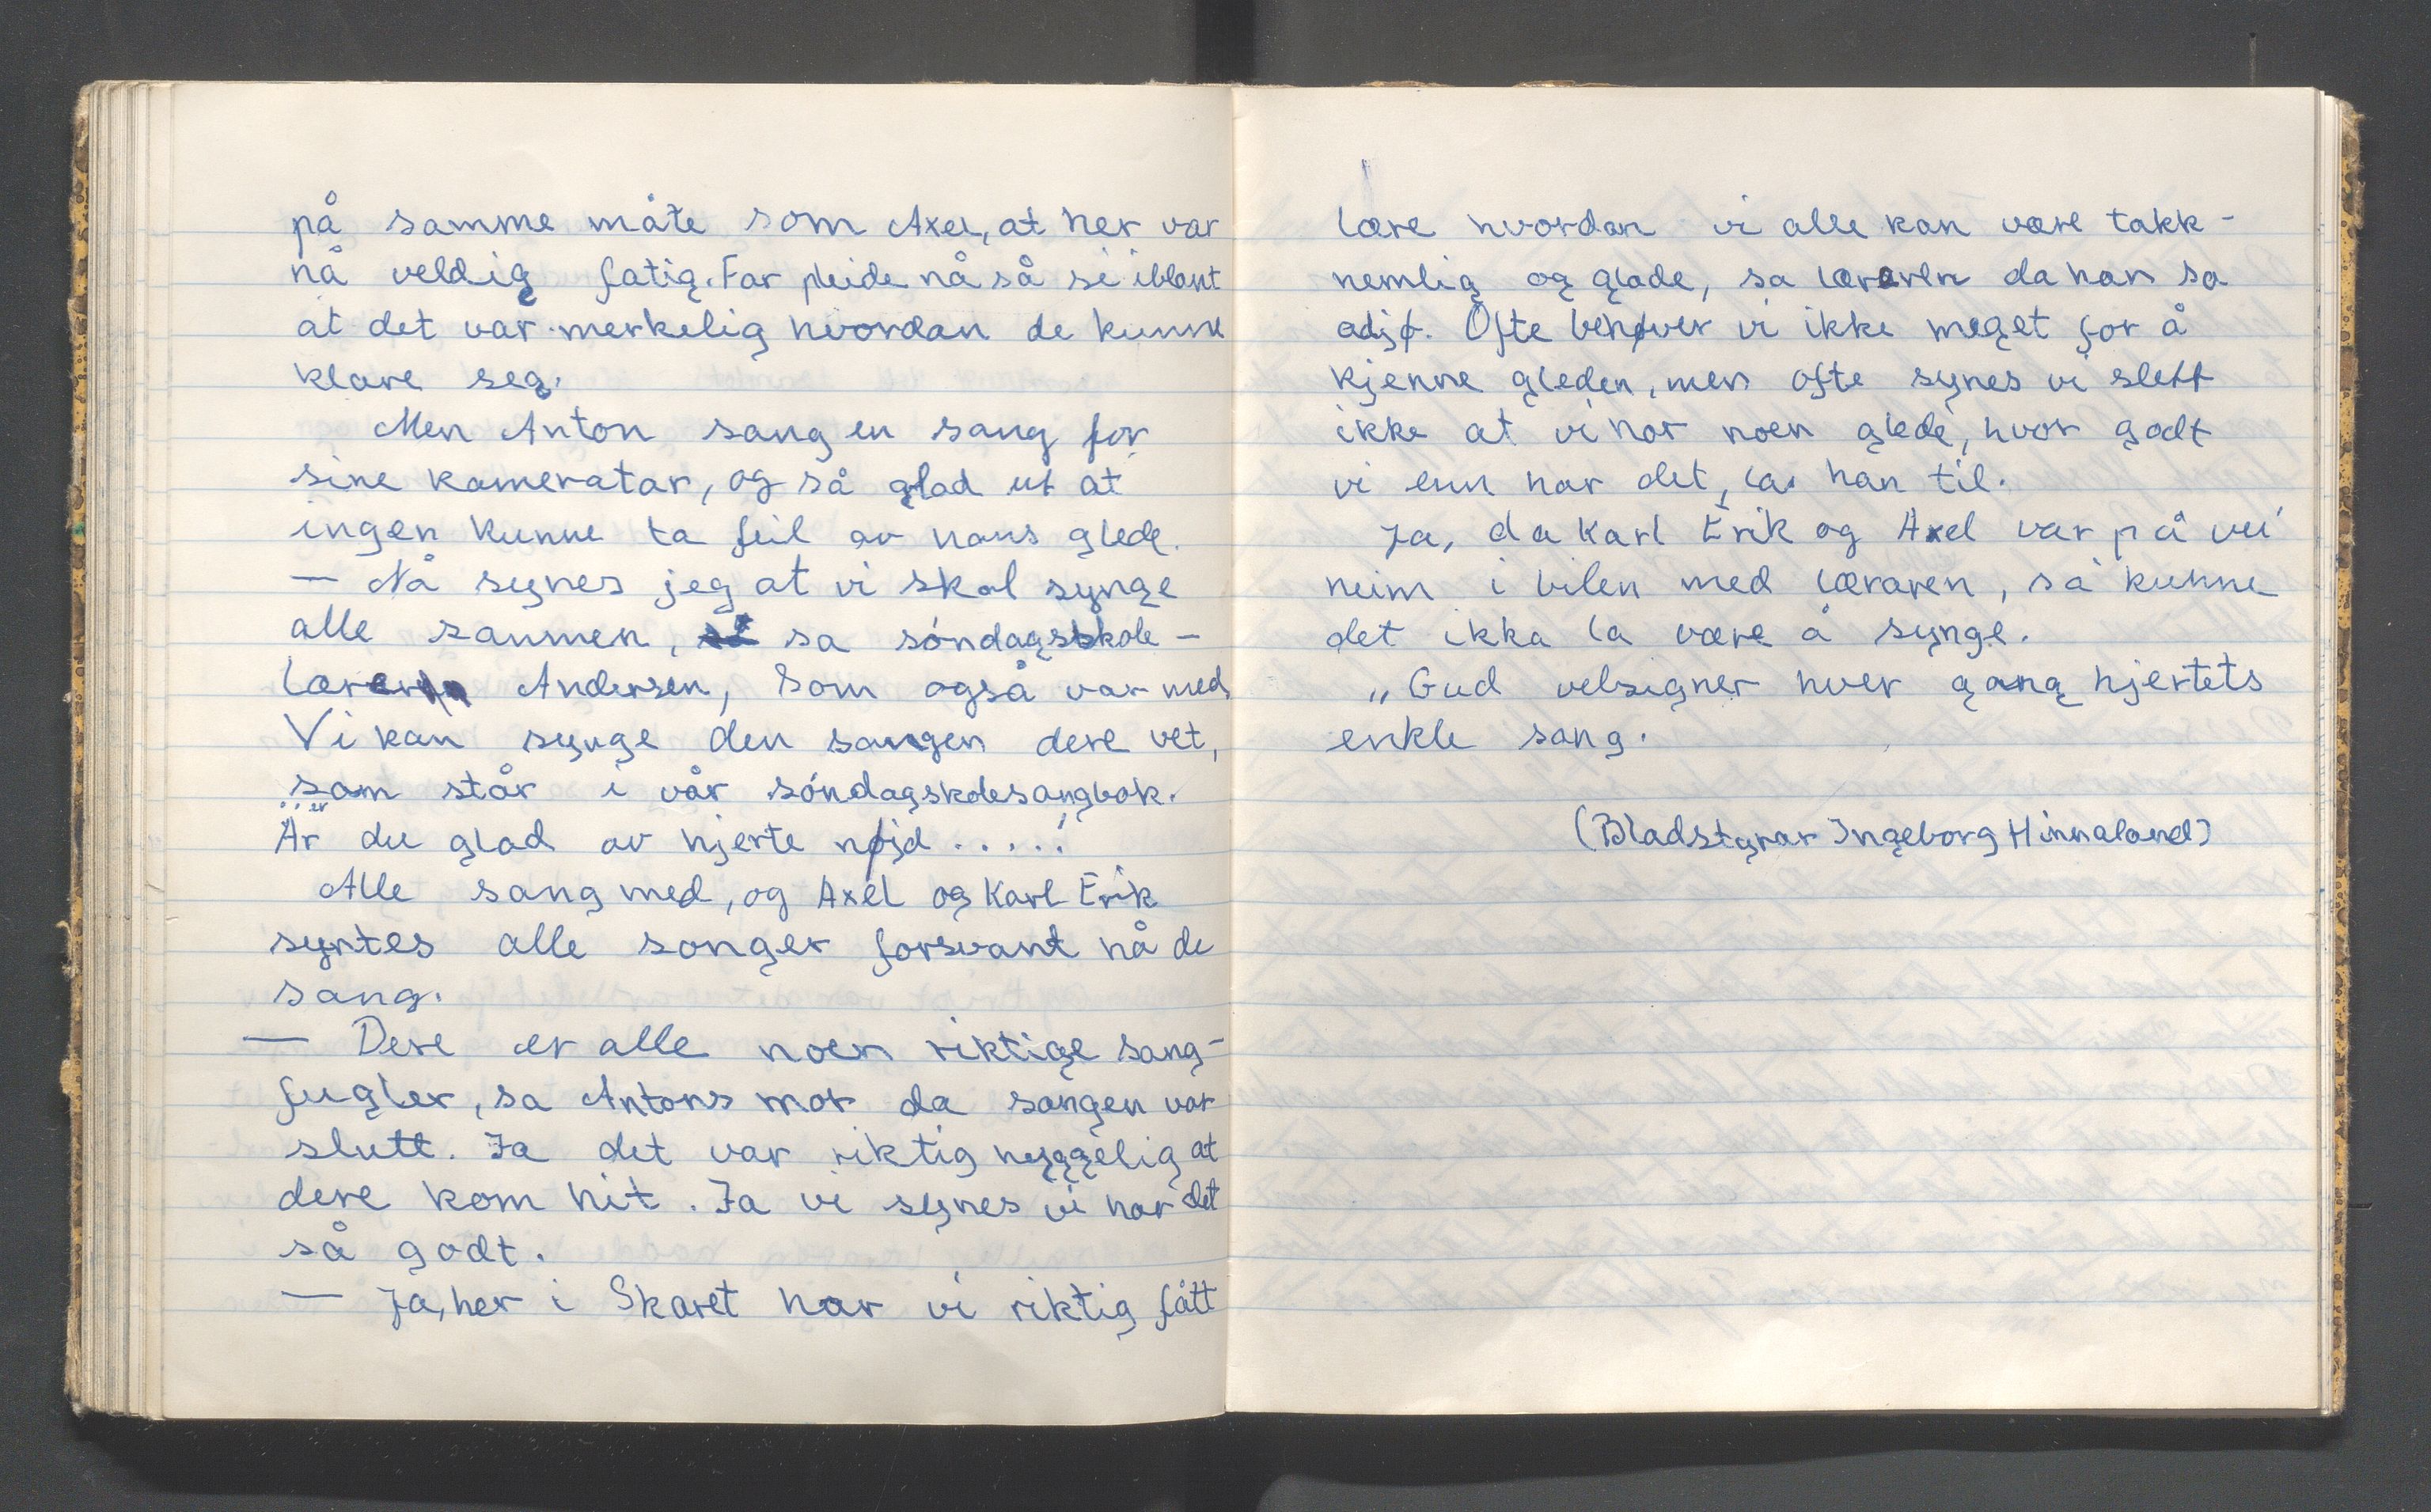 på samme måte som Axel, at her var
nå veldig fatig. Far pleide nå så si iblant
at det var merkelig hvordan de kunne
klare seg.
Men Anton sang en sang for
sine kameratar, og så glad ut at
ingen kunne ta feil av hans glede.
— Nå synes jeg at vi skal synge
alle sammen, sa søndagsskole-
læreren Andersen, som også var med,
Vi kan synge den sangen dere vet,
som står i vår søndagskolesangbok.
"er
Är du glad av hjerte nøjd .....!
Alle sang med, og Axel og Karl Erik
syntes alle sorger forsvant nå de
sang.
— Dere er alle noen riktige sang-
fugler, sa Antons mor da sangen var
slutt. Ja det var riktig hyggelig at
dere kom hit. Ja vi synes vi har det
så godt.
— Ja, her i Skaret har vi riktig fått
lære hvordan vi alle kan være takk-
nemlig og glade, sa læraren da han sa
adjø. Ofte behøver vi ikke meget for å
kjenne gleden, men ofte synes vi slett
ikke at vi har noen glede, hvor godt
vi enn har det, la han til.
Ja, da Karl Erik og Axel var på vei
heim i bilen med læraren, så kunne
det ikka la være å synge.
„Gud velsigner hver gang hjertets
enkle sang.
(Bladstyrar Ingeborg Hinnaland)